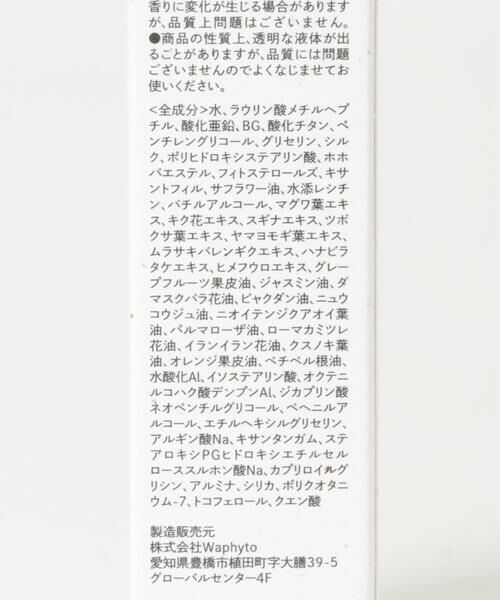 香りに変化が生じる場合があります
が、品質上問題はございません。
●商品の性質上、透明な液体が出
ることがありますが、品質には問題
ございませんのでよくなじませてお
使いください。
<全成分>水、ラウリン酸メチルヘプ
チル、酸化亜鉛、BG、酸化チタン、ペ
ンチレングリコール、グリセリン、シル
ク、ポリヒドロキシステアリン酸、ホホ
バエステル、フィトステロールズ、キサ
ントフィル、サフラワー油、水添レシチ
ン、バチルアルコール、マグワ葉エキ
ス、キク花エキス、スギナエキス、ツボ
クサ葉エキス、ヤマヨモギ葉エキス、
ムラサキバレンギクエキス、ハナビラ
タケエキス、ヒメフウロエキス、グレー
プフルーツ果皮油、ジャスミン油、ダ
マスクバラ花油、ビャクダン油、ニュウ
コウジュ油、ニオイテンジクアオイ葉
油、パルマローザ油、ローマカミツレ
花油、イランイラン花油、クスノキ葉
油、オレンジ果皮油、ベチベル根油、
水酸化Al、イソステアリン酸、オクテニ
ルコハク酸デンプンAl、ジカプリン酸
ネオペンチルグリコール、ベヘニルア
ルコール、エチルヘキシルグリセリン、
アルギン酸Na、キサンタンガム、ステ
アロキシPGヒドロキシエチルセル
ローススルホン酸Na、カプリロイルグ
リシン、アルミナ、シリカ、ポリクオタニ
ウム-7、トコフェロール、クエン酸
製造販売元
株式会社Waphyto
愛知県豊橋市植田町字大膳39-5
グローバルセンター4F